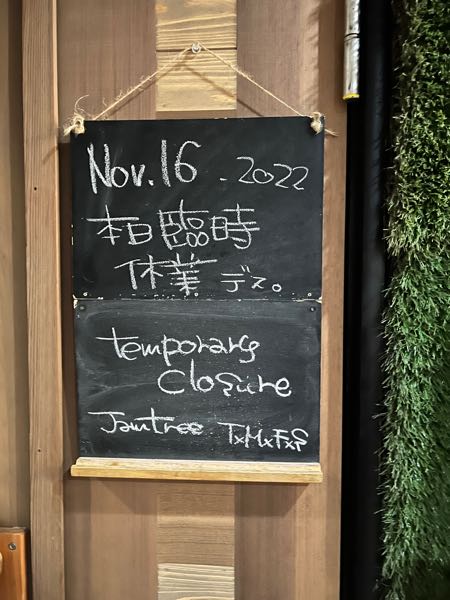 Nov.16.2022
本日臨時
休業デス。
temporary
closure
Jamtree TxMxFxP